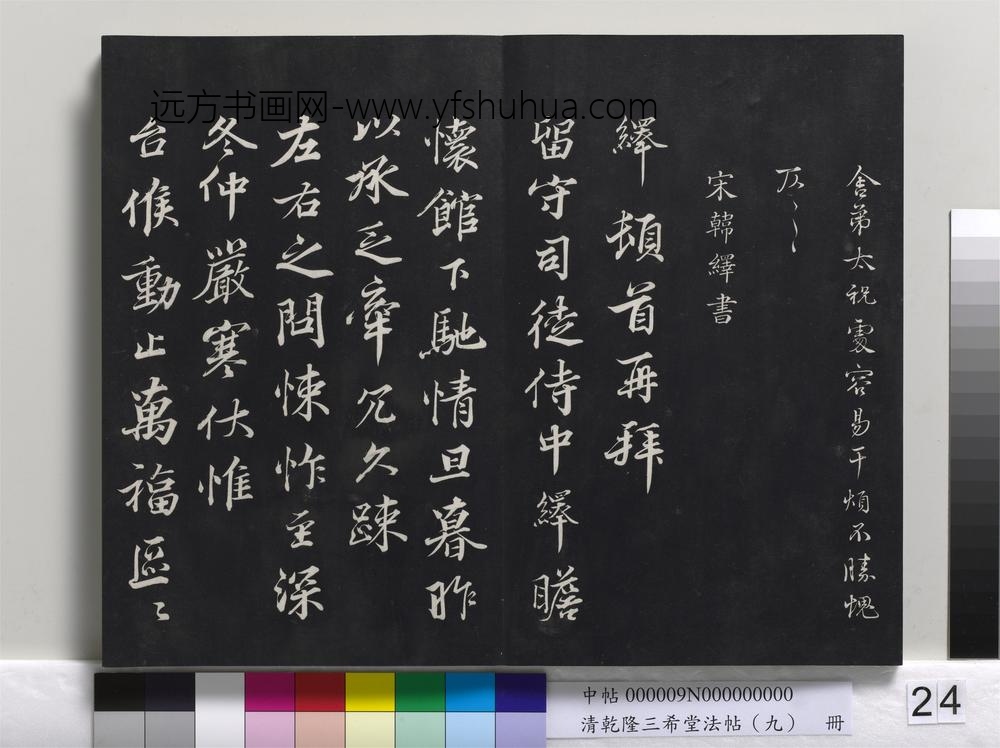 远方书画网-www.yfshuhua.com
舍弟太祝處容易干煩不勝愧
宋韓繹書
繹頓首再拜
留守司徒侍中繹瞻
懷館下馳情旦暮昨
以承乏牽冗久疎
左右之問悚怍至深
冬仲嚴寒伏惟
台候動止萬福區〻
中帖 000009N000000000
清乾隆三希堂法帖(九) 冊
24